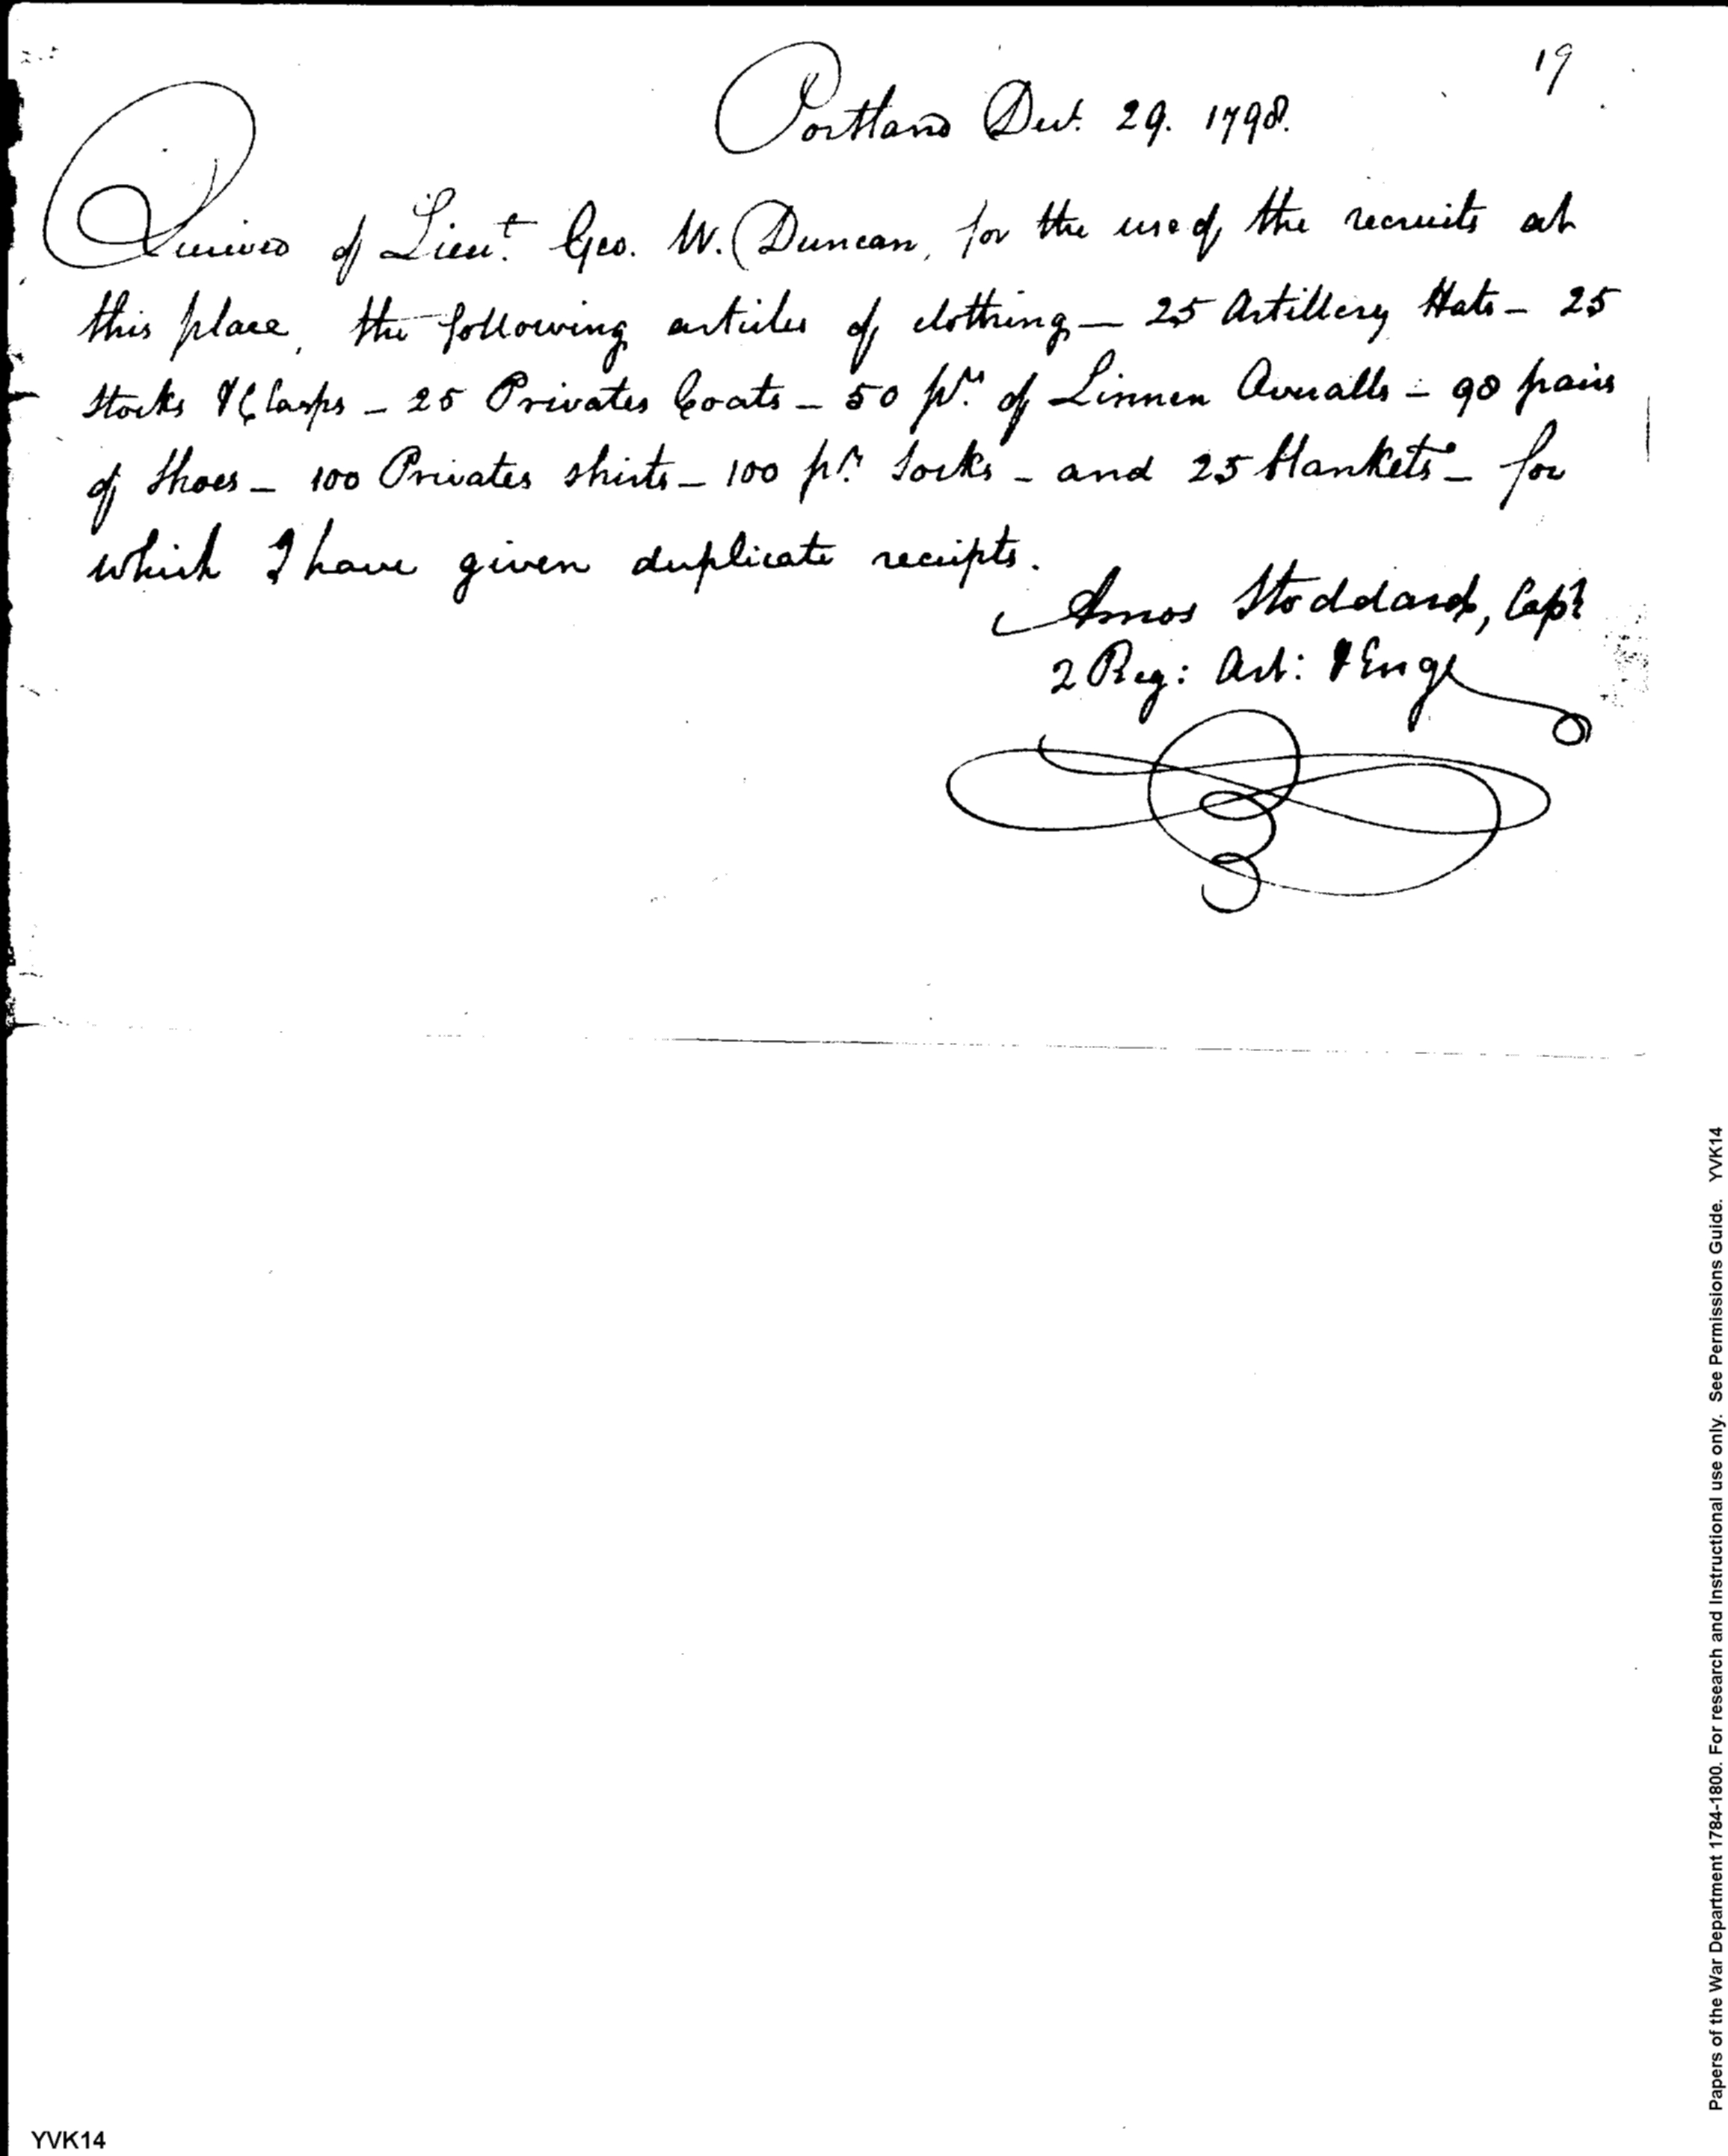 19
Portland Decr. 29. 1798.
Received of Lieut. Geo. W. Duncan, for the use of the recruits at
this place, the following articles of clothing — 25 Artillery Hats — 25
Stocks & Clasps — 25 Privates Coats — 50 prs. of Linnen Overalls — 90 pairs
of Shoes — 100 Privates shirts — 100 prs. Socks — and 25 blankets — for
which I have given duplicate receipts.
Amos Stoddard, Capt
2 Reg: Art: & Engr
Papers of the War Department 1784-1800. For research and Instructional use only. See Permissions Guide. YVK14
YVK14